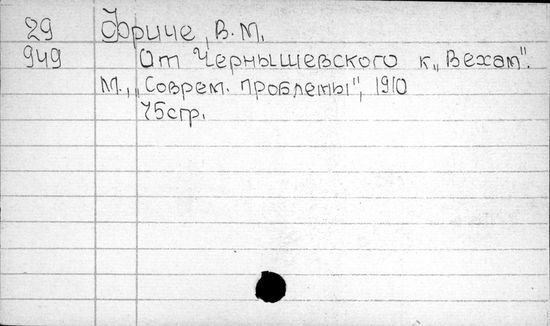 29 Фриче, В.М.
949 От Чернышевского к „Вехам".
М., „Соврем. проблемы", 1910
75стр.